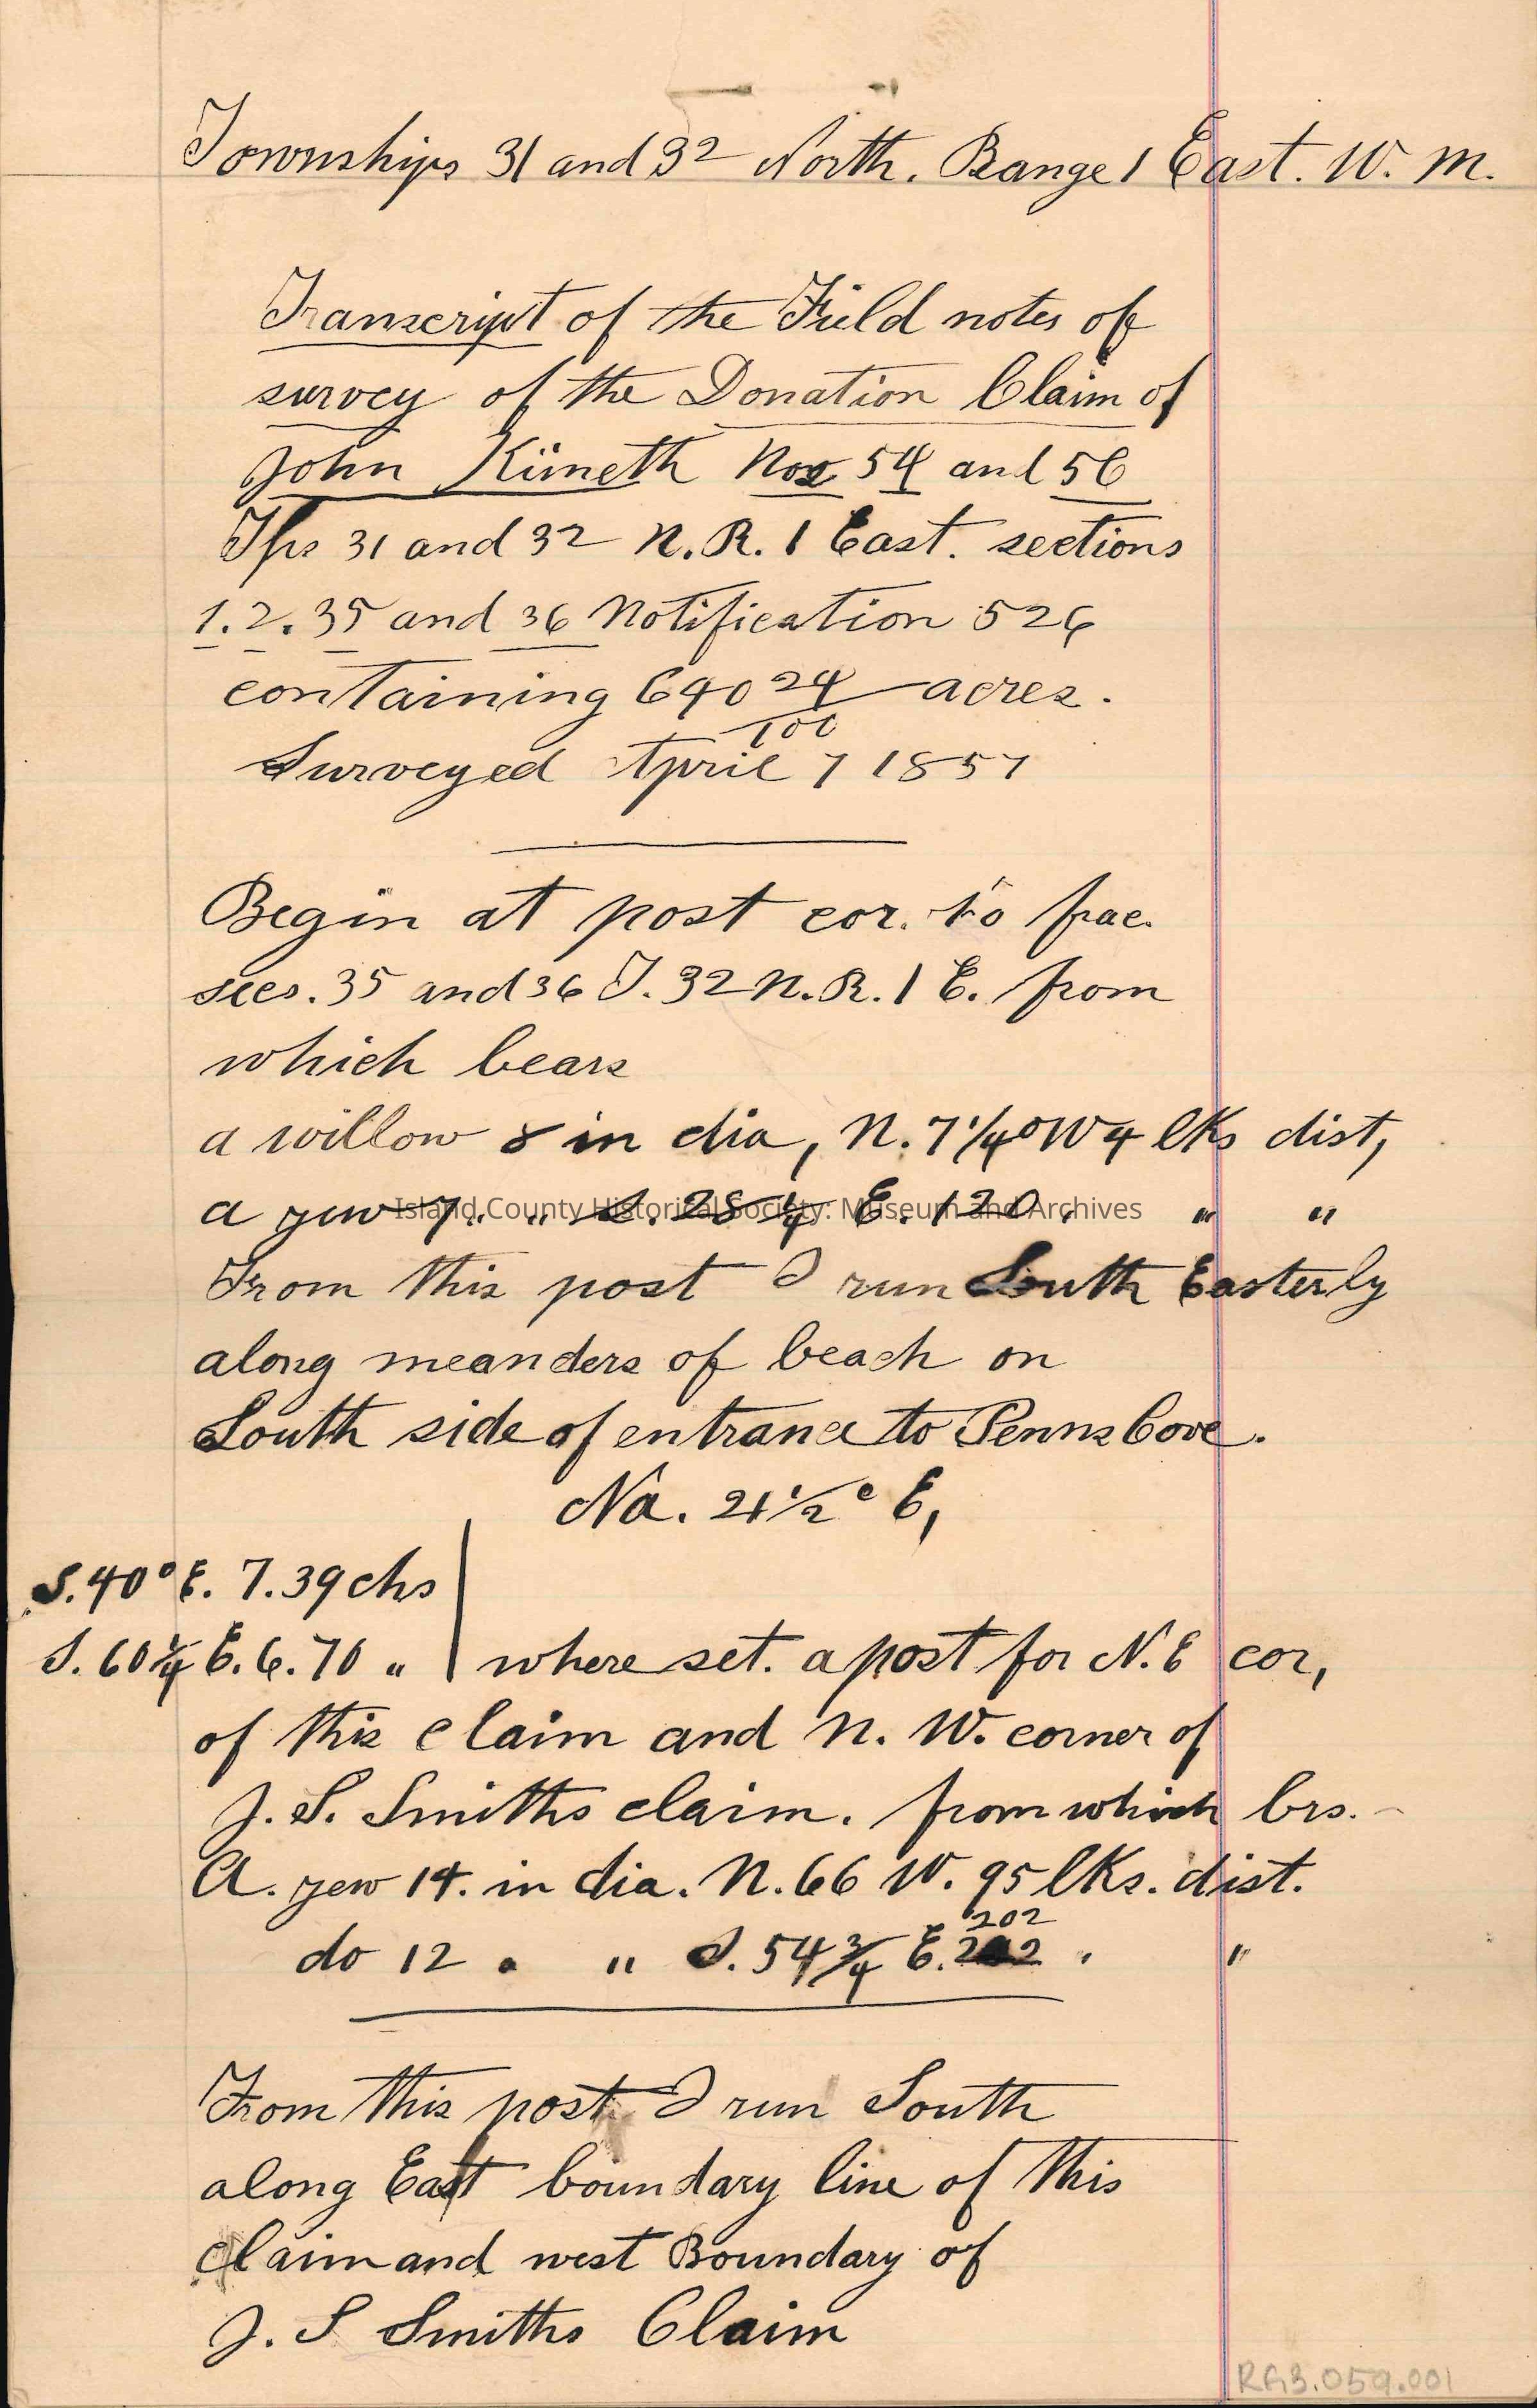 Townships 31 and 32 North. Range 1 East. W. M.
Transcript of the Field notes of
survey of the Donation Claim of
John Kineth Nos 54 and 56
Tps 31 and 32 N. R. 1 East. sections
1. 2. 35 and 36 Notification 526
containing 640 24/100 acres.
Surveyed April 7 1857
Begin at post cor. to frac.
secs. 35 and 36 T. 32 N. R. 1 E. from
which bears
a willow 8 in dia, N. 7 1/4° W 4 lks dist,
a yew 7 " " S. 28 1/4 E. 120. " "
Island County Historical Society: Museum and Archives
From this post I run South Easterly
along meanders of beach on
South side of entrance to Penns Cove.
Va. 21 1/2° E,
S. 40° E. 7.39 chs
S. 60 1/4 E. 6.70 " where set. a post for N. E cor,
of this claim and N. W. corner of
J. S. Smiths claim. from which brs.
A. yew 14. in dia. N. 66 W. 95 lks. dist.
202
do 12 " " S. 54 3/4 E. 202 " "
From this post I run South
along East boundary line of this
claim and west Boundary of
J. S Smiths Claim
RG3.059.001